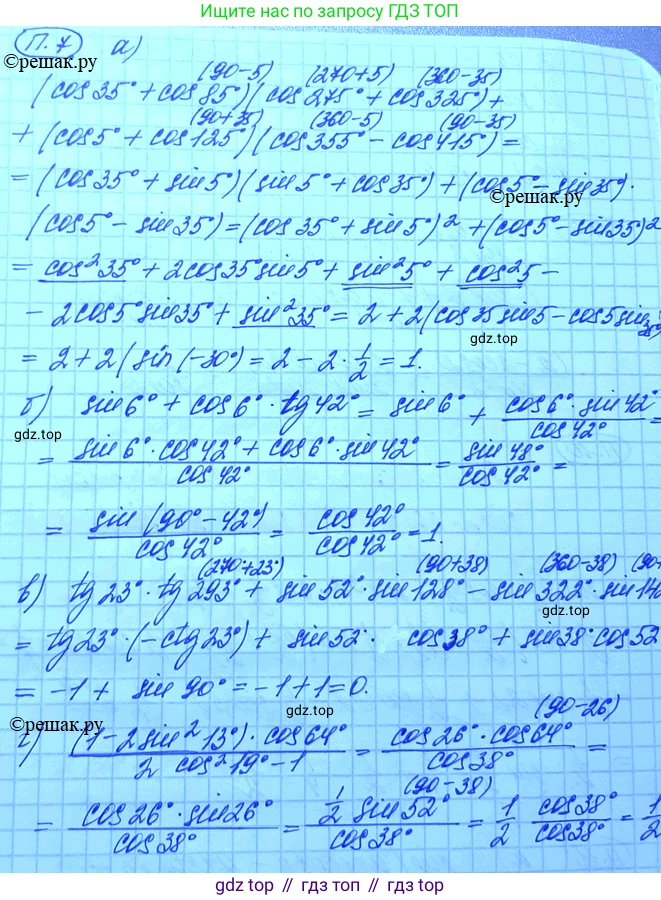 Ищите нас по запросу ГДЗ ТОП
П.7 а)
©решак.ру
(90-5) (270+5) (360-35)
(cos35° + cos85°)(cos275° + cos325°) +
(90+35) (360-5) (90-35)
+ (cos5° + cos125°)(cos355° - cos415°) =
= (cos35° + sin5°)(sin5° + cos35°) + (cos5° - sin35°)·
©решак.ру
(cos5° - sin35°) = (cos35° + sin5°)² + (cos5° - sin35°)²
= cos²35° + 2cos35°sin5° + sin²5° + cos²5 -
- 2cos5°sin35° + sin²35° = 2 + 2(cos35 sin5 - cos5 sin35°)
gdz top
= 2 + 2(sin(-30°) = 2 - 2 · 1/2 = 1.
б) sin6° + cos6° · tg42° = sin6° + cos6° · sin42° / cos42° =
gdz top
= sin6° · cos42° + cos6° · sin42° / cos42° = sin48° / cos42° =
= sin(90° - 42°) / cos42° = cos42° / cos42° = 1.
(270°+23°) (90+38) (360-38) (90+
в) tg23° · tg293° + sin52° · sin128° - sin322° · sin142
gdz top
= tg23° · (-ctg23°) + sin52° · cos38° + sin38° · cos52
= -1 + sin90° = -1 + 1 = 0.
gdz top
©решак.ру
(90-26)
г) (1 - 2sin²13°) · cos64° / 2cos²19° - 1 = cos26° · cos64° / cos38° =
(90-38)
= cos26° · sin26° / cos38° = 1/2 sin52° / cos38° = 1/2 cos38° / cos38° = 1/2
gdz top
gdz top // гдз топ // gdz top